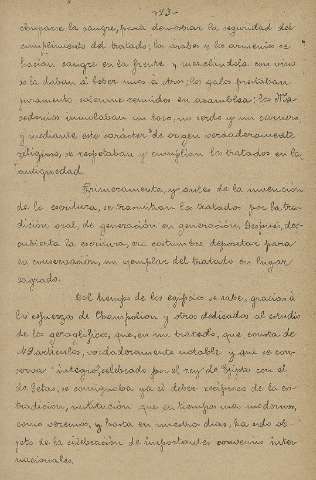 -43-
chuparse la sangre, para demostrar la seguridad del
cumplimiento del tratado; los arabes y los armenios se
hacian sangre en la frente y mezclandola con vino
se la daban á beber unos á otros; los galos prestaban
juramento solemne reunidos en asamblea; los Ma-
cedonios inmolaban un toro, un cerdo y un carnero,
y mediante este carácter de origen verdaderamente
religioso, se respetaban y cumplian los tratados en la
antiguedad.
Primeramente, y antes de la invencion
de la escritura, se trasmitian los tratados por la tra-
dicion oral, de generación en generación. Despues, des-
cubierta la escritura, era costumbre depositar para
su conservacion, un ejemplar del tratado en lugar
sagrado.
Del tiempo de los egipcios se sabe, gracias á
los esfuerzos de Champolion y otros dedicados al estudio
de los geroglificos, que, en un tratado, que consta de
19 articulos, verdaderamente notable y que se con-
serva integro, celebrado por el rey de Egipto con el
de Jetas, se consignaba ya el deber reciproco de la ex-
tradicion, institución que en tiempos mas modernos,
como veremos, y hasta en nuestros dias, ha sido ob-
jeto de la celebración de importantes convenios inter-
nacionales.